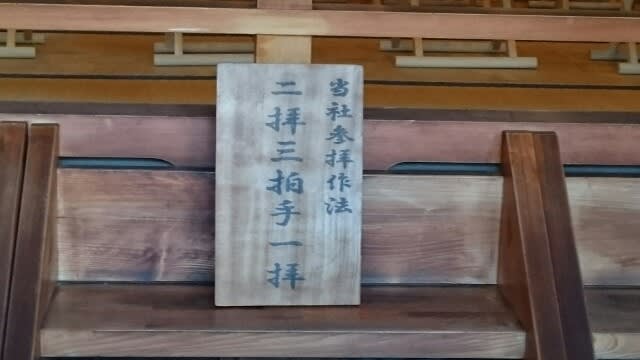 当社参拝作法
二拝三拍手一拝